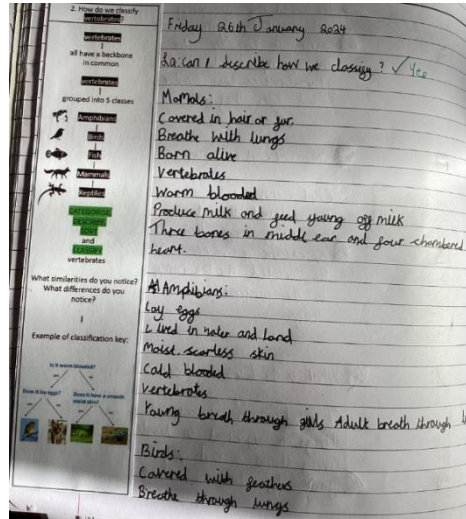 2. How do we classify
vertebrates?
vertebrates
all have a backbone
in common
vertebrates
grouped into 5 classes
Amphibians
Birds
Fish
Mammals
Reptiles
CATEGORISE
DESCRIBE
SORT
and
CLASSIFY
vertebrates
What similarities do you notice?
What differences do you
notice?
Example of classification key:
Is it warm blooded?
Does it lay eggs?
Does it have a smooth
moist skin?
Friday 26th January 2024
La: can I describe how we classify? ✓ Yes
Mamals:
Covered in hair or fur.
Breathe with lungs
Born alive
Vertebrates
Warm blooded
Produce milk and feed young off milk
Three bones in middle ear and four chambered
heart.
Ampibians:
Lay eggs
Lived in water and land
Moist scarless skin
Cold blooded
Vertebrates
Young breath through gills Adult breath through
Birds:
Covered with feathers
Breathe through lungs